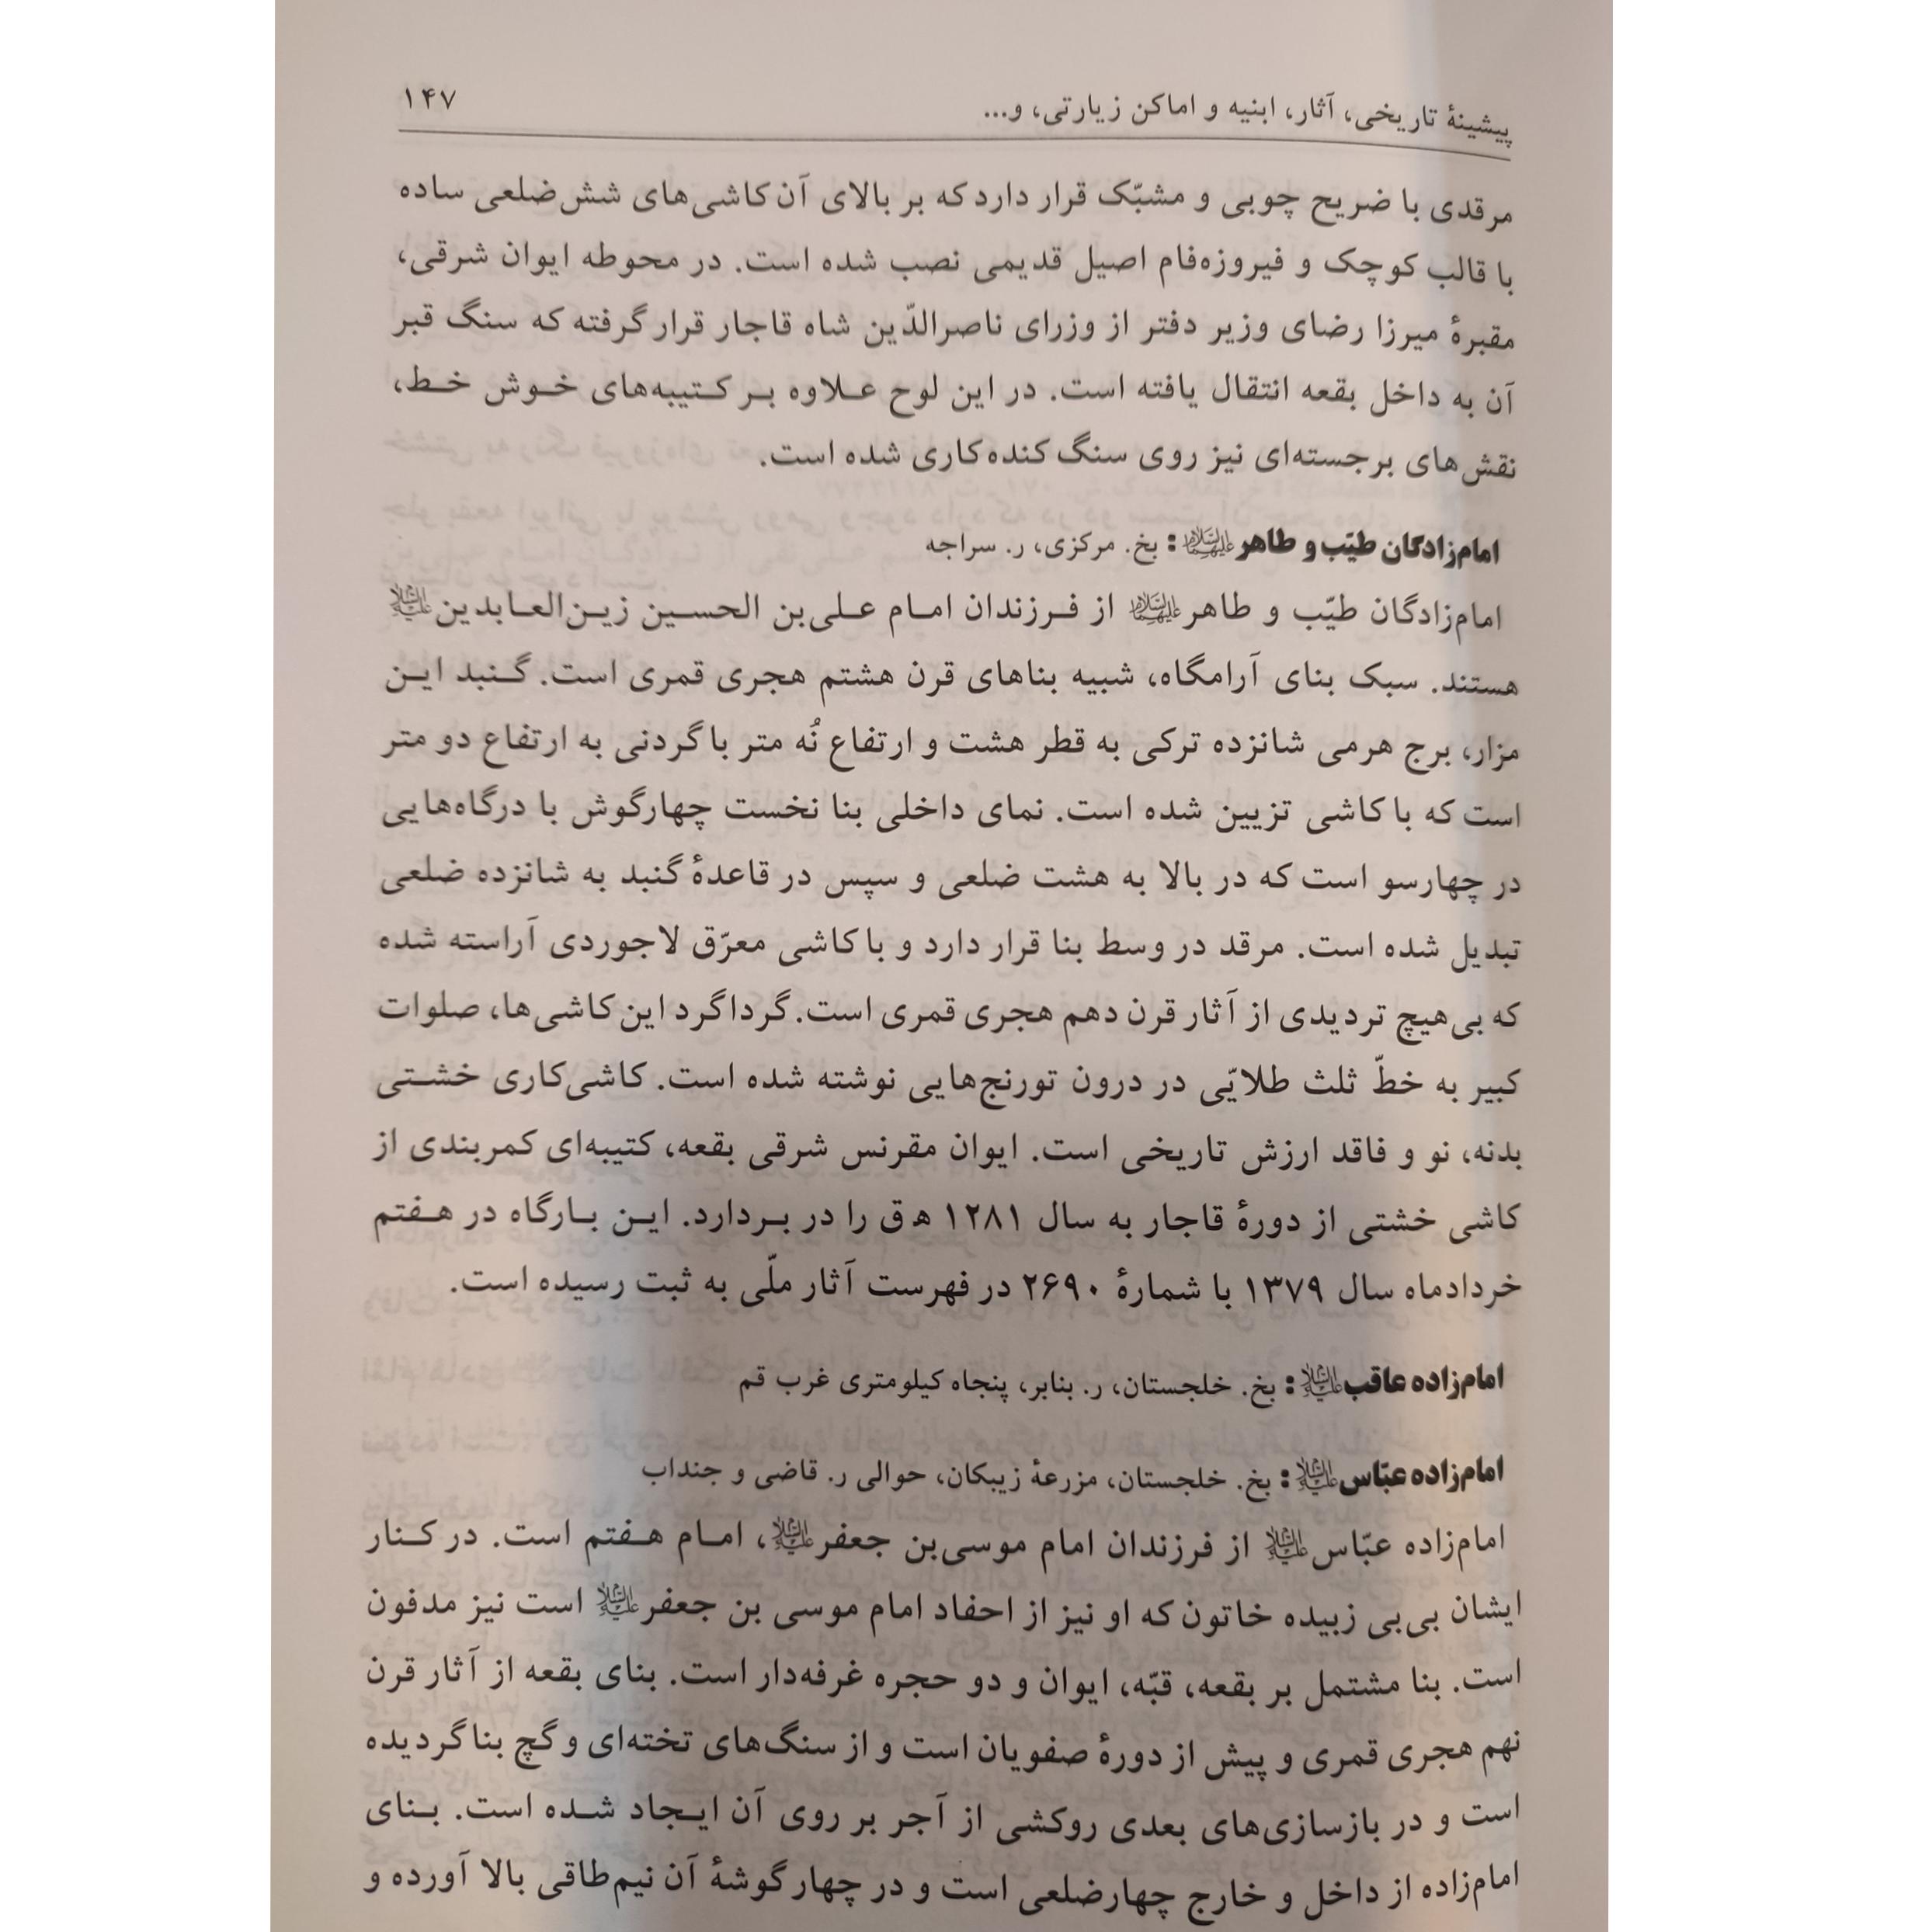 پیشینهٔ تاریخی، آثار، ابنیه و اماکن زیارتی، و... ۱۴۷
مرقدی با ضریح چوبی و مشبّک قرار دارد که بر بالای آن کاشی‌های شش ضلعی ساده
با قالب کوچک و فیروزه‌فام اصیل قدیمی نصب شده است. در محوطه ایوان شرقی،
مقبرهٔ میرزا رضای وزیر دفتر از وزرای ناصرالدّین شاه قاجار قرار گرفته که سنگ قبر
آن به داخل بقعه انتقال یافته است. در این لوح علاوه بر کتیبه‌های خوش خط،
نقش‌های برجسته‌ای نیز روی سنگ کنده کاری شده است.
امام‌زادگان طیّب و طاهر علیهماالسلام: بخ. مرکزی، ر. سراجه
امام‌زادگان طیّب و طاهر علیهماالسلام از فرزندان امام علی‌بن الحسین زین‌العابدین علیه‌السلام
هستند. سبک بنای آرامگاه، شبیه بناهای قرن هشتم هجری قمری است. گنبد این
مزار، برج هرمی شانزده ترکی به قطر هشت و ارتفاع نُه متر با گردنی به ارتفاع دو متر
است که با کاشی تزیین شده است. نمای داخلی بنا نخست چهارگوش با درگاه‌هایی
در چهارسو است که در بالا به هشت ضلعی و سپس در قاعدهٔ گنبد به شانزده ضلعی
تبدیل شده است. مرقد در وسط بنا قرار دارد و با کاشی معرّق لاجوردی آراسته شده
که بی‌هیچ تردیدی از آثار قرن دهم هجری قمری است. گرداگرد این کاشی‌ها، صلوات
کبیر به خطّ ثلث طلایّی در درون تورنج‌هایی نوشته شده است. کاشی‌کاری خشتی
بدنه، نو و فاقد ارزش تاریخی است. ایوان مقرنس شرقی بقعه، کتیبه‌ای کمربندی از
کاشی خشتی از دورهٔ قاجار به سال ۱۲۸۱ ه‍ ق را در بردارد. این بارگاه در هفتم
خردادماه سال ۱۳۷۹ با شمارهٔ ۲۶۹۰ در فهرست آثار ملّی به ثبت رسیده است.
امام‌زاده عاقب علیه‌السلام: بخ. خلجستان، ر. بنابر، پنجاه کیلومتری غرب قم
امام‌زاده عبّاس علیه‌السلام: بخ. خلجستان، مزرعهٔ زیبکان، حوالی ر. قاضی و جنداب
امام‌زاده عبّاس علیه‌السلام از فرزندان امام موسی‌بن جعفر علیه‌السلام، امام هفتم است. در کنار
ایشان بی‌بی زبیده خاتون که او نیز از احفاد امام موسی بن جعفر علیه‌السلام است نیز مدفون
است. بنا مشتمل بر بقعه، قبّه، ایوان و دو حجره غرفه‌دار است. بنای بقعه از آثار قرن
نهم هجری قمری و پیش از دورهٔ صفویان است و از سنگ‌های تخته‌ای و گچ بنا گردیده
است و در بازسازی‌های بعدی روکشی از آجر بر روی آن ایجاد شده است. بنای
امام‌زاده از داخل و خارج چهارضلعی است و در چهار گوشهٔ آن نیم‌طاقی بالا آورده و